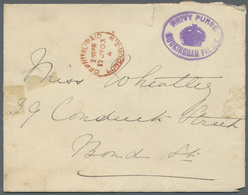 PRIVY PURSE
BUCKINGHAM PALACE
17 JY 03
Miss Wheatley
39 Conduit Street
Bond St.